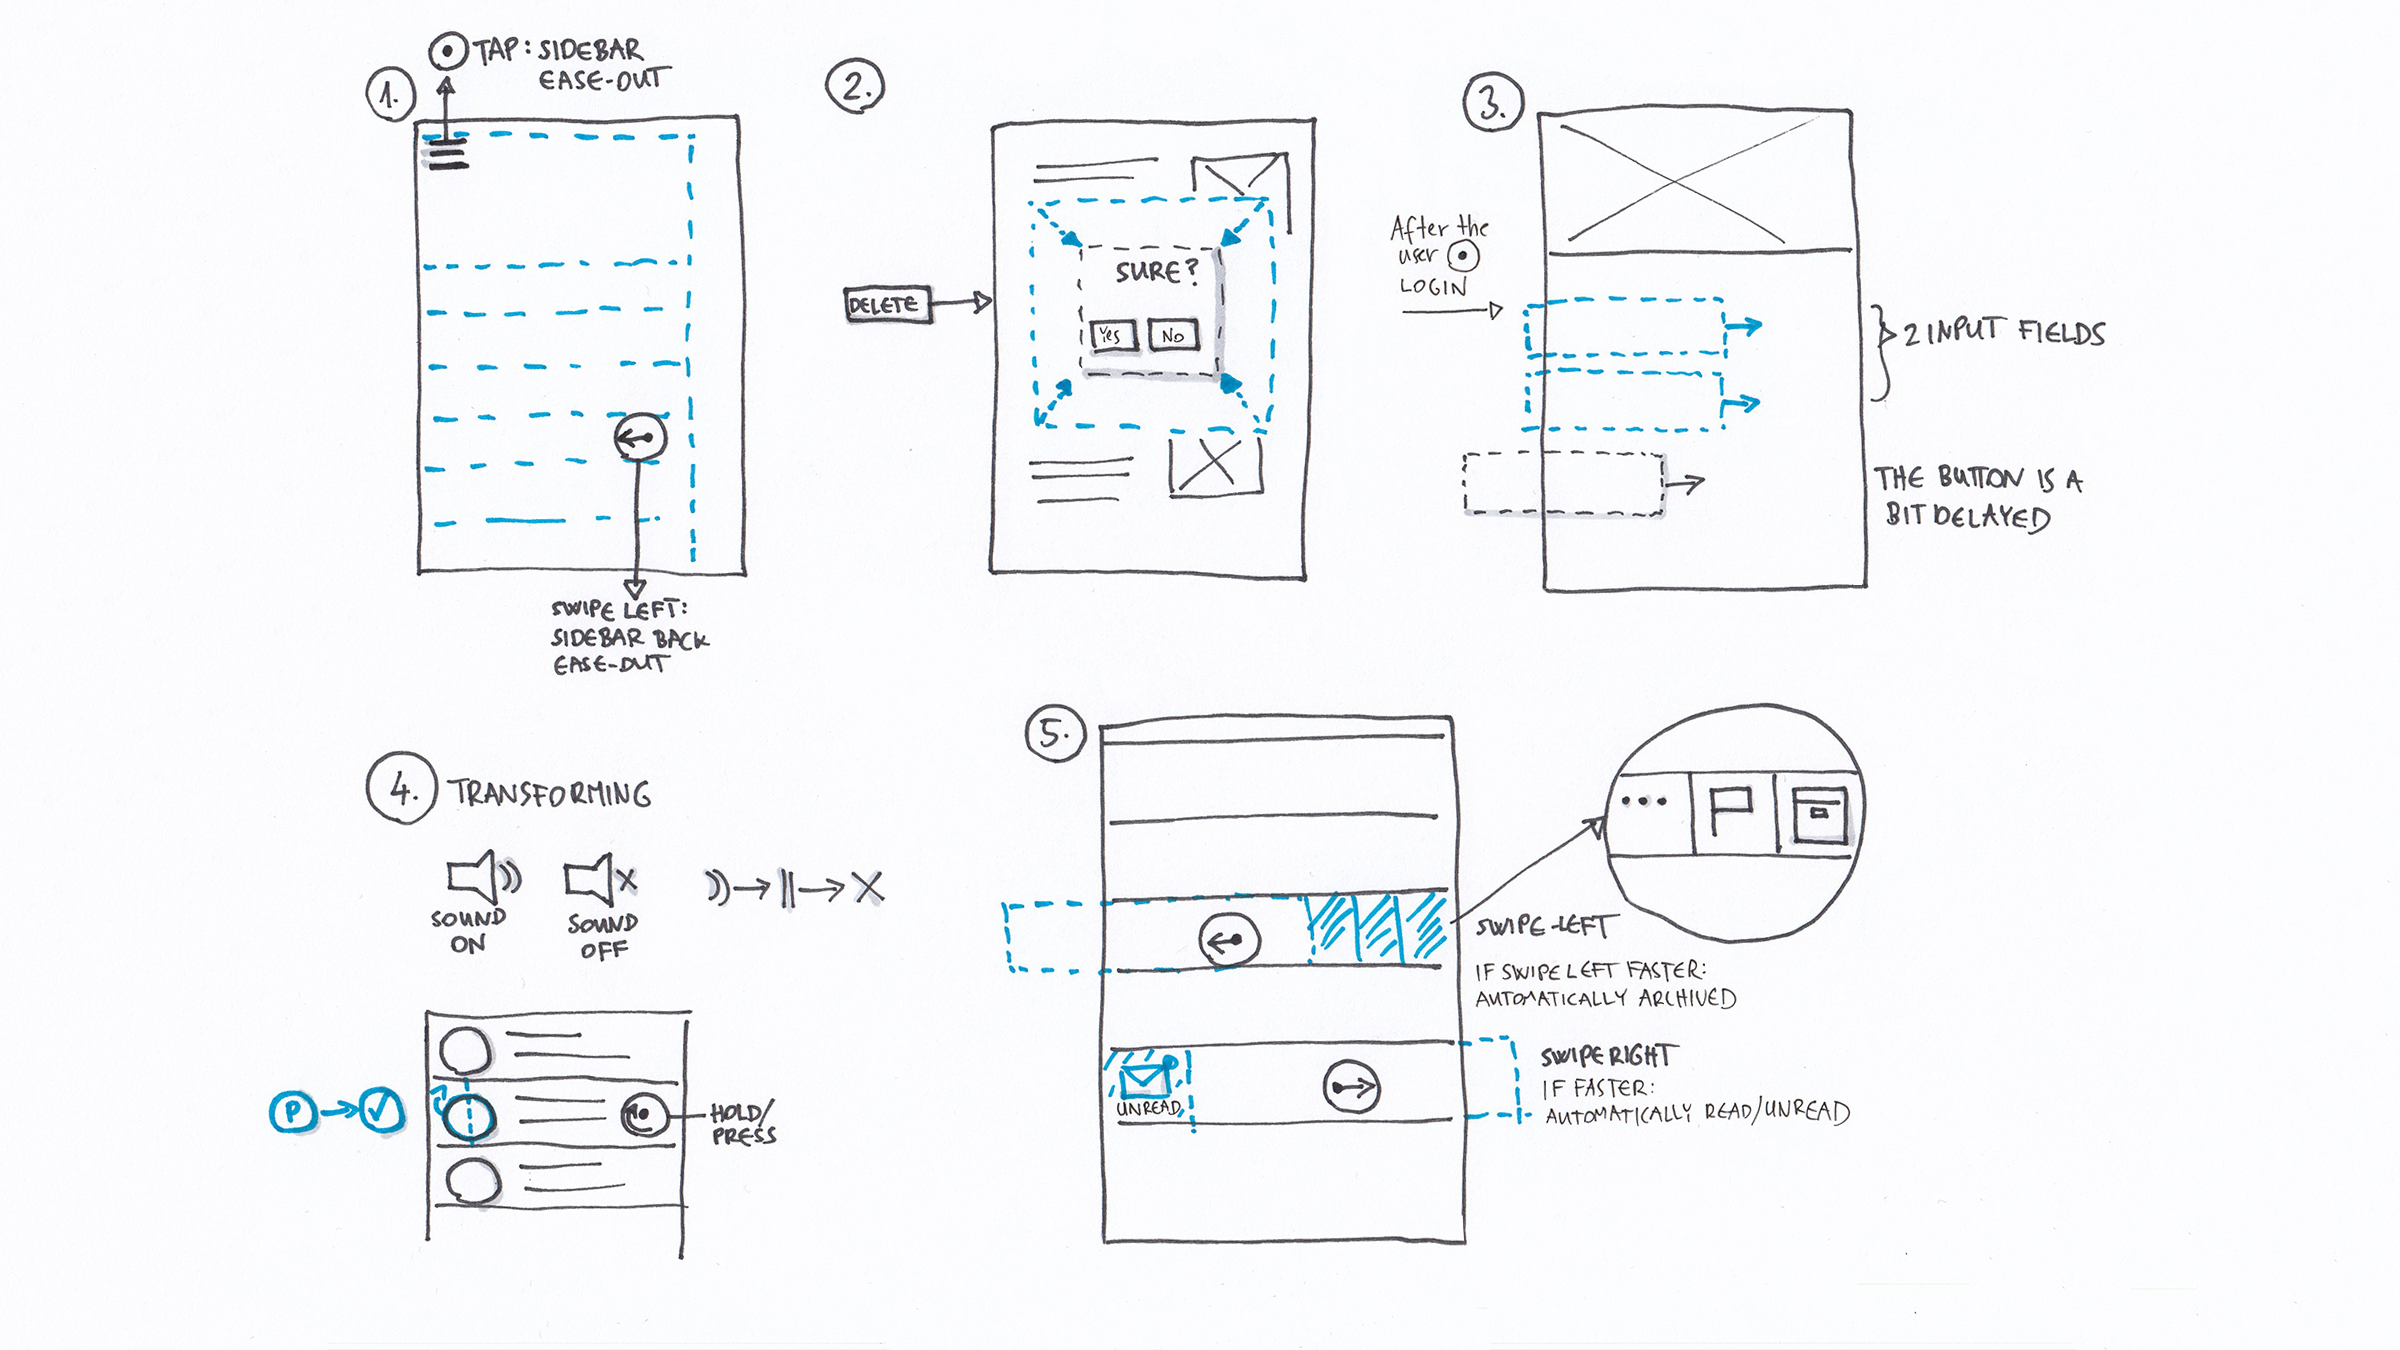 1.
TAP: SIDEBAR
EASE-OUT
SWIPE LEFT:
SIDEBAR BACK
EASE-OUT
2.
DELETE
SURE?
Yes
No
3.
After the
user
LOGIN
2 INPUT FIELDS
THE BUTTON IS A
BIT DELAYED
4. TRANSFORMING
SOUND
ON
SOUND
OFF
P
HOLD/
PRESS
5.
SWIPE-LEFT
IF SWIPE LEFT FASTER:
AUTOMATICALLY ARCHIVED
UNREAD
SWIPE RIGHT
IF FASTER:
AUTOMATICALLY READ/UNREAD